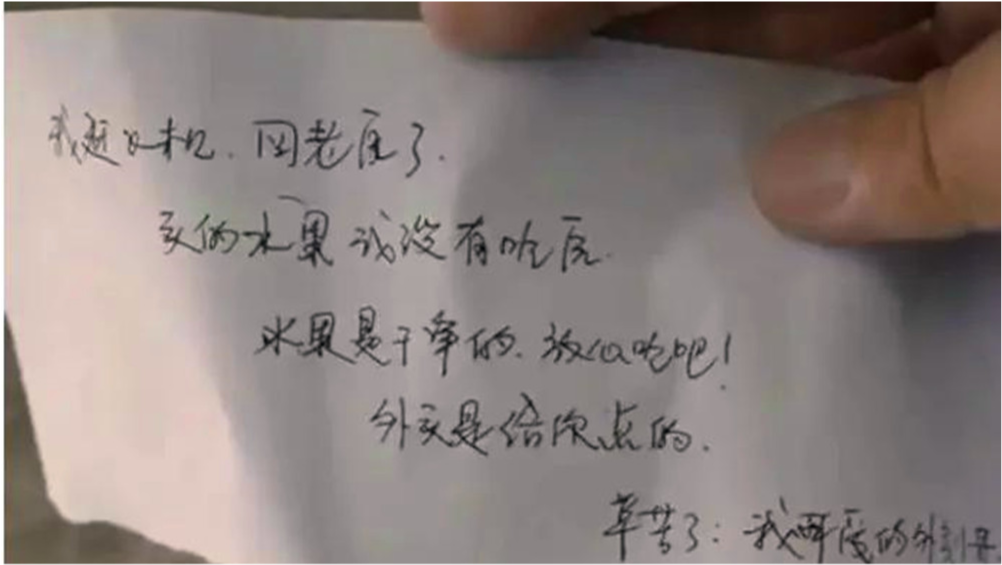 我赶飞机.回老家了.
买的水果我没有吃完.
水果是干净的.放心吃吧!
外卖是给你点的.
辛苦了:我 的外